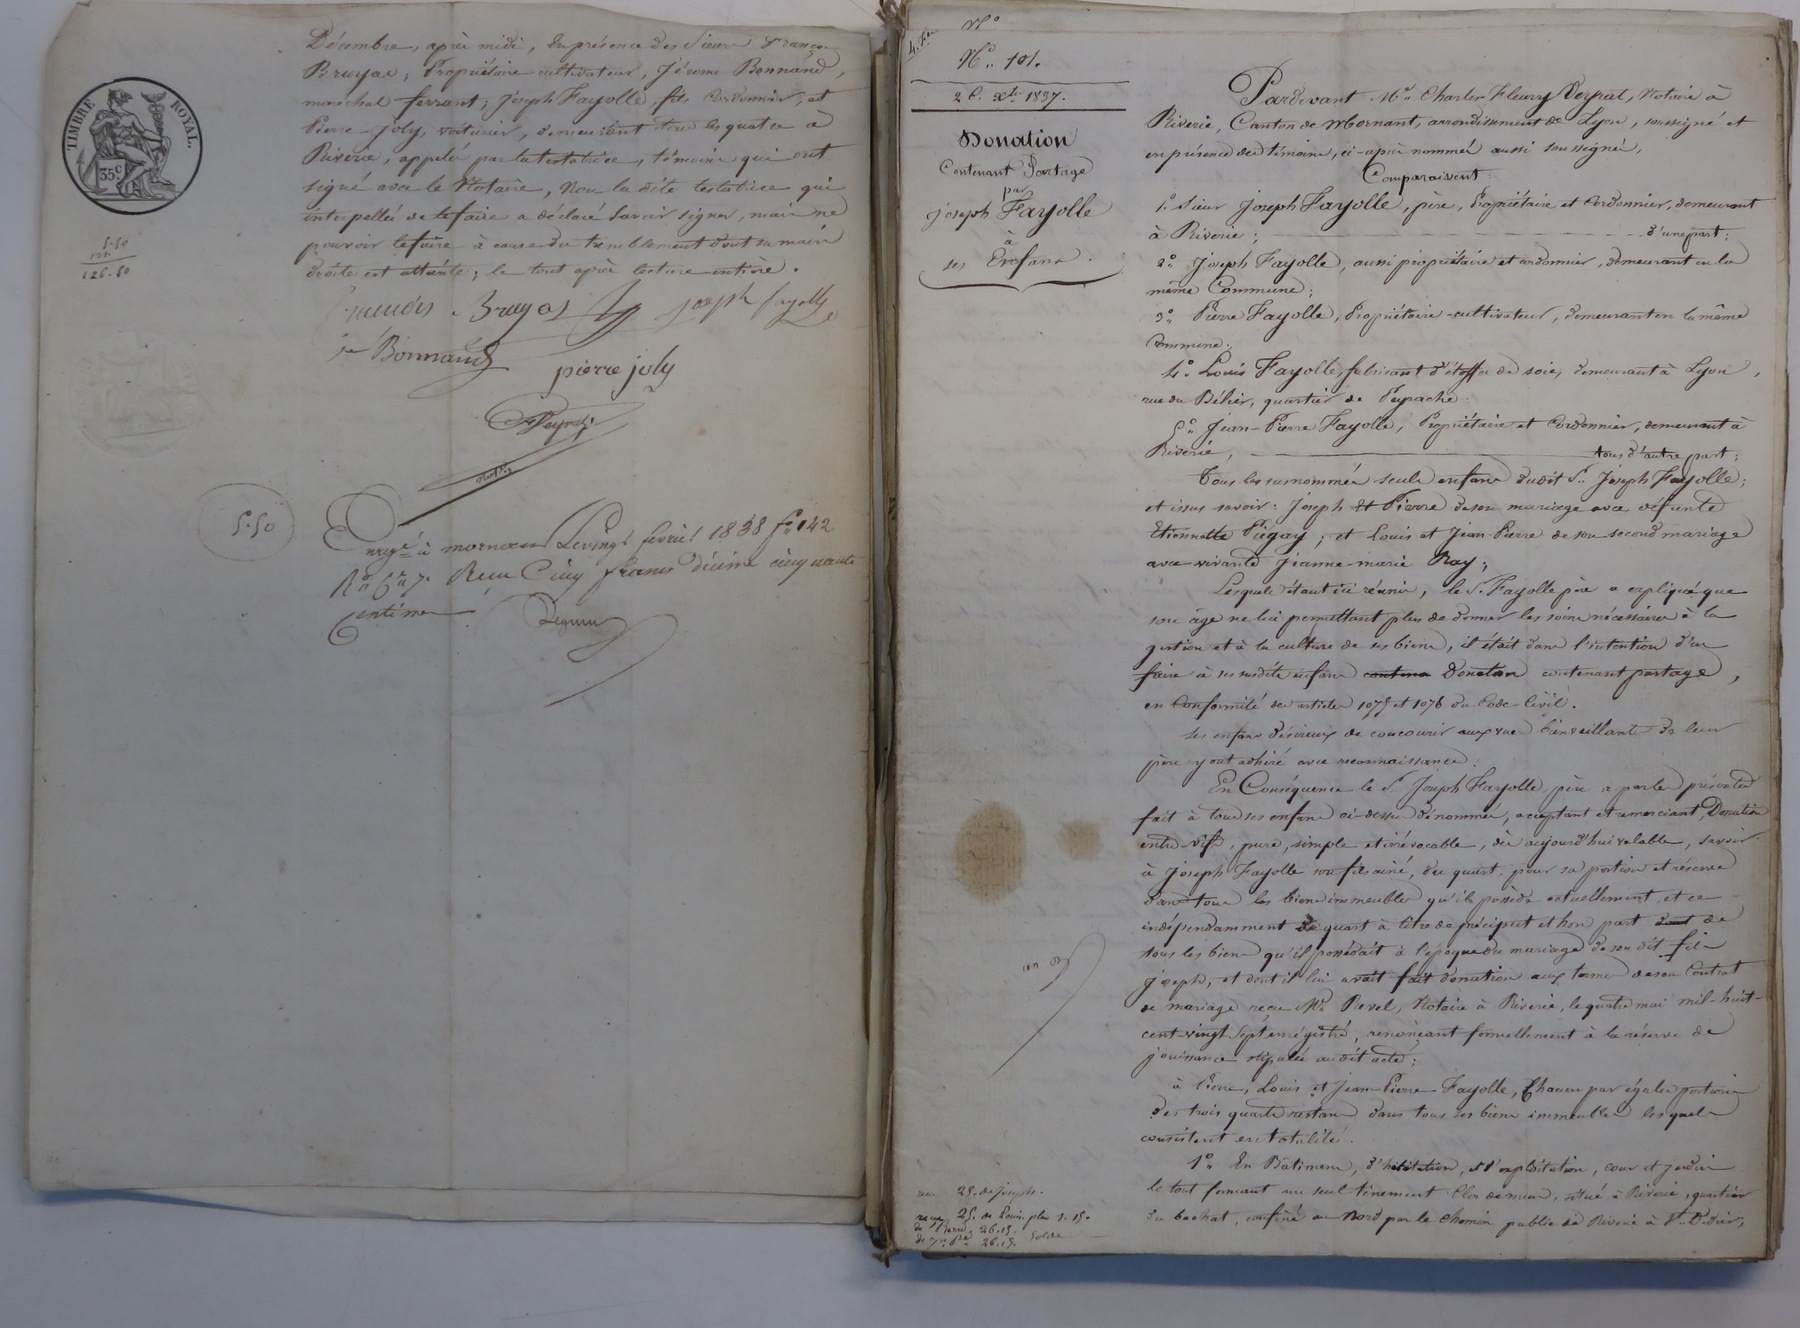 Décembre, après midi, En présence des Sieurs França
Bruyas, Propriétaire cultivateur, Jérome Bonnand,
maréchal ferrant; Joseph Fayolle, fils Cordonnier, et
Pierre Joly, voiturier, demeurant tous les quatre à
Riverie, appelés par la testatrice, témoins qui ont
signé avec le Notaire, Non la dite testatrice qui
interpellée de le faire a déclaré savoir signer, mais ne
pouvoir le faire à cause du tremblement dont sa main
droite est atteinte; le tout après lecture entière.
TIMBRE ROYAL.
35c
5.50
126.50
Bruyas joseph fayolle
Bonnand
pierre joly
Peyrat
Notre
5.50
Enregé à mornant Le vingt fevrier 1838 fo 142
Ro Reçu Cinq francs décime cinquante
centimes
No
No. 101.
26. Xbre 1837.
Donation
Contenant Partage
par
Joseph Fayolle
à
ses Enfans.
Pardevant Me Charles Fleury Peyrat, Notaire à
Riverie, Canton de Mornant, arrondissement de Lyon, soussigné et
en présence des témoins, ci-après nommés aussi soussignés,
Comparaissent:
1o Sieur Joseph Fayolle, père, Propriétaire et Cordonnier, demeurant
à Riverie; d'une part;
2o Joseph Fayolle, aussi propriétaire et cordonnier, demeurant en la
même Commune;
3o Pierre Fayolle, Propriétaire-cultivateur, demeurant en la même
Commune;
4o Louis Fayolle, fabricant d'étoffes de soie, demeurant à Lyon,
rue du Bélier, quartier de Peyrache;
5o Jean-Pierre Fayolle, Propriétaire et Cordonnier, demeurant à
Riverie, tous d'autre part;
Tous les surnommés seuls enfans dudit Sr Joseph Fayolle;
et issus savoir: Joseph et Pierre de son mariage avec défunte
Etiennette Piégay; et Louis et Jean-Pierre de son second mariage
avec vivante Jeanne-marie Ray;
Lesquels étant ici réunis, le Sr Fayolle père a expliqué que
son âge ne lui permettant plus de donner les soins nécessaires à la
gestion et à la culture de ses biens, il était dans l'intention d'en
faire à ses susdits enfans Donation contenant partage,
en Conformité des articles 1075 et 1076 du Code Civil.
Ses enfans désireux de concourir aux vues bienveillantes de leur
père y ont adhéré avec reconnaissance.
En Conséquence le Sr Joseph Fayolle, père a par les présentes
fait à tous ses enfans ci-dessus dénommés, acceptant et remerciant, Donation
entre-vifs, pure, simple et irrévocable, dès aujourd'hui valable, savoir
à Joseph Fayolle son fils ainé, du quart, pour sa portion et réserve
dans tous les biens immeubles qu'il possède actuellement, et ce
indépendamment du quart à titre de préciput et hors part de
tous les biens qu'il possédait à l'époque du mariage de son dit fils
Joseph, et dont il lui avait fait donation aux termes de son Contrat
de mariage reçu Me Revel, Notaire à Riverie, le quatre mai mil-huit-
cent-vingt Sept enregistré, renonçant formellement à la réserve de
jouissance stipulée audit acte;
à Pierre, Louis et Jean-Pierre Fayolle, Chacun par égales portions
des trois quarts restans dans tous ses biens immeubles lesquels
consistent en totalité.
1o En Bâtimens, d'habitation, et d'exploitation, cour et jardin
le tout formant un seul tènement Clos de murs, situé à Riverie, quartier
du bachat, confiné au Nord par le Chemin public de Riverie à St Didier,
reçu 25. de joseph.
reçu 25. de Louis plus 1.15.
de Pierre, 26.15.
26.15. Solde